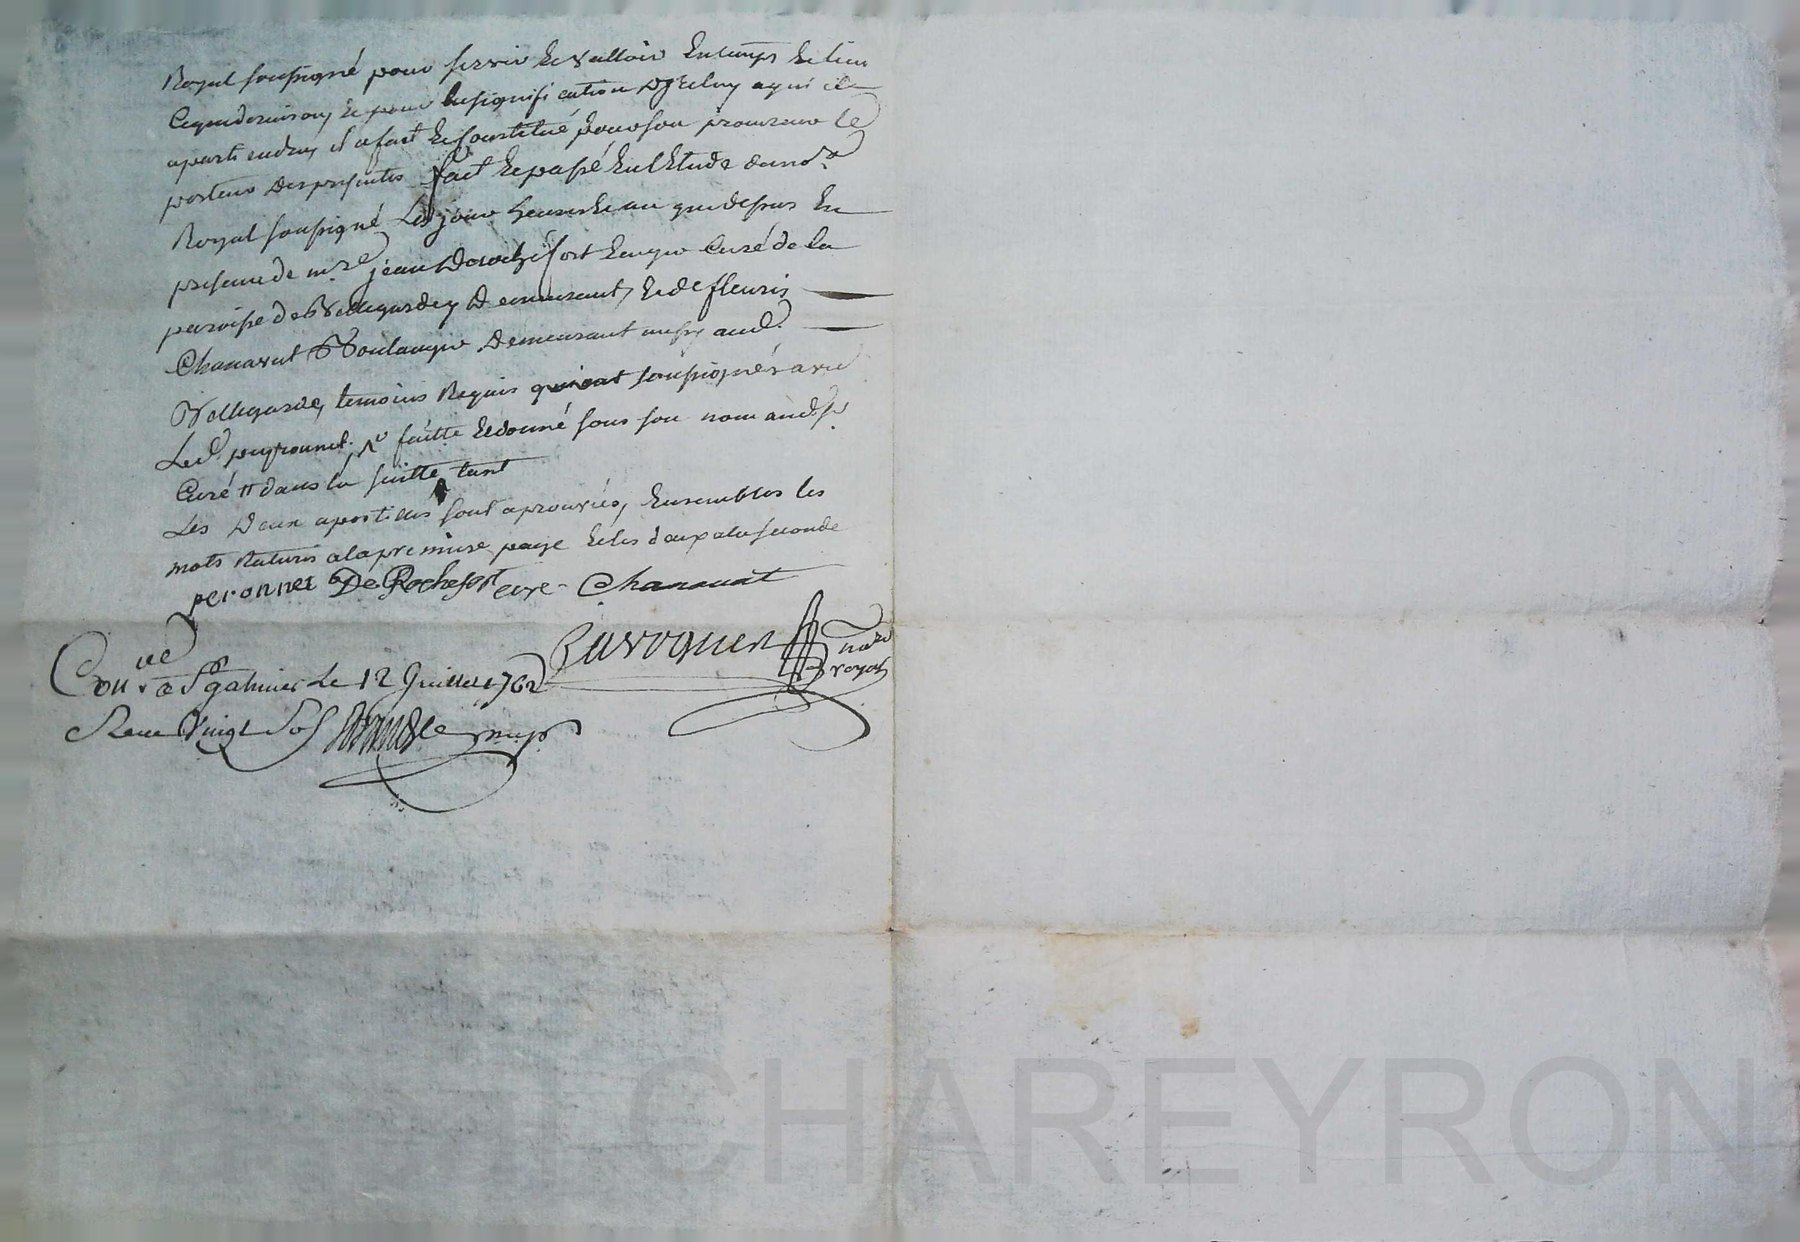 Royal soussigné pour servir et valloir en temps et lieu
ce que de raison, et pour la signification d'icelny a qui il
apartiendra, il a fait et constitué pour son procureur le
porteur des presentes fait et passé en l'Etude du no.re
Royal soussigné Les jour heure et an que dessus En
presence de m.re jean De rochefort Ecuyer Curé de la
paroisse de Bellegarde y Demeurant, et de fleuris
Chanavat Boulanger Demeurant aussy aud.
Bellegarde, temoins Requis qui ont soussignés avec
Led. peyronnet, faitte et donné sous son nom aud. S.r
Curé dans la suitte tant
Les Deux apostilles sont aprouvées, Ensembles les
mots Raturés a la premiere page et les deux a la seconde
peronnet De Rochefort curé Chanavat
Ravoguen no.re royal
Con.ve a S.t galmier Le 12 Juillet 1762
Receu Vingt Sols
Pascal CHAREYRON